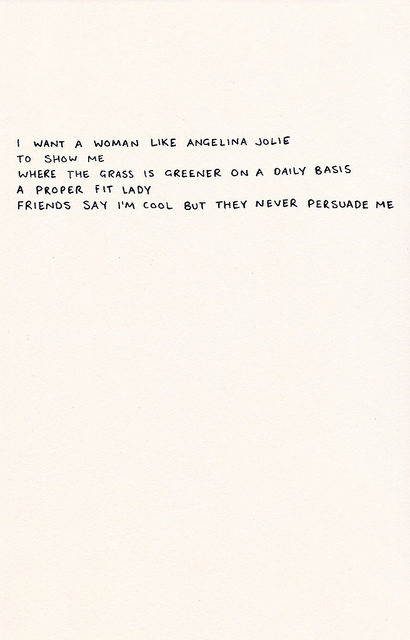 I WANT A WOMAN LIKE ANGELINA JOLIE
TO SHOW ME
WHERE THE GRASS IS GREENER ON A DAILY BASIS
A PROPER FIT LADY
FRIENDS SAY I'M COOL BUT THEY NEVER PERSUADE ME